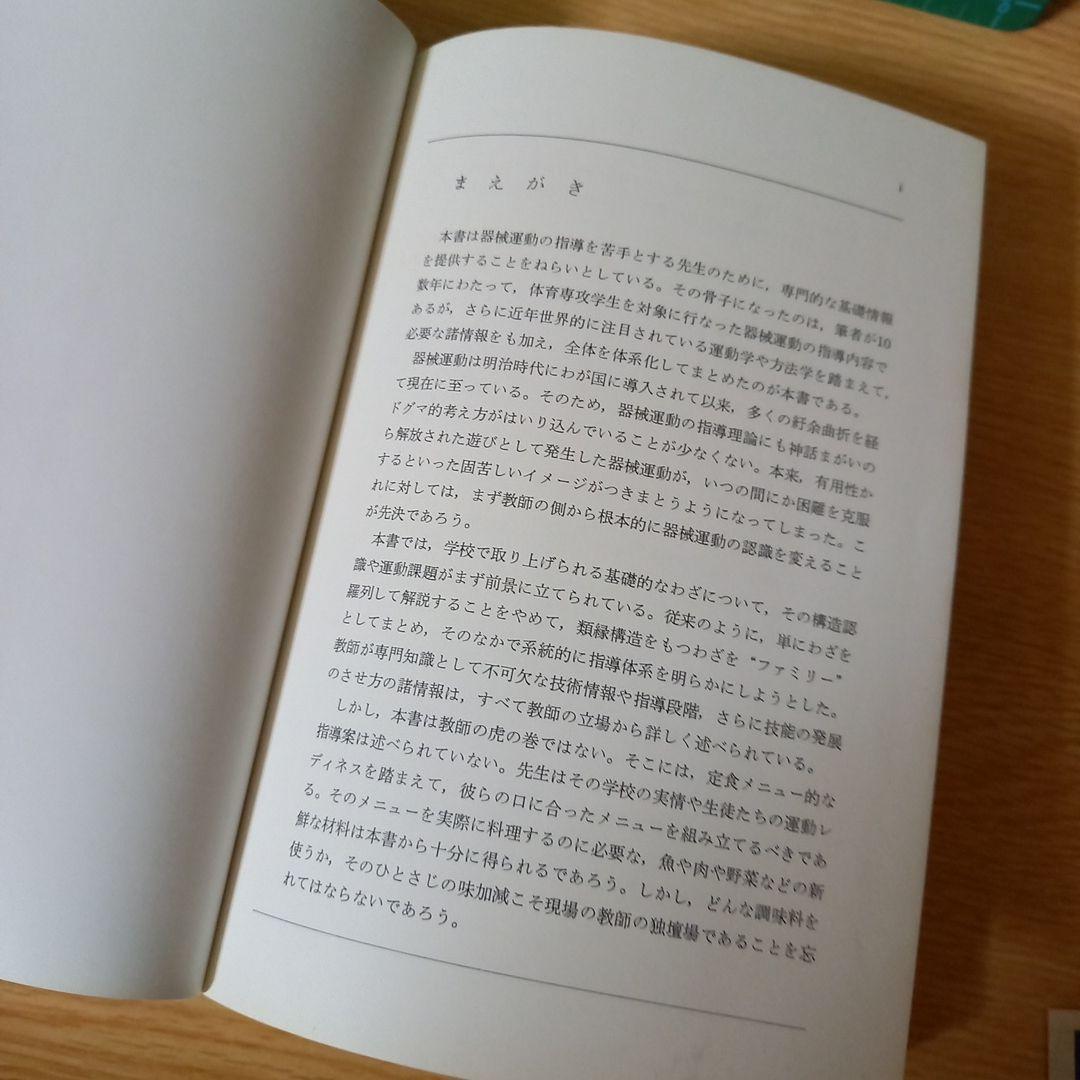 i
まえがき
本書は器械運動の指導を苦手とする先生のために，専門的な基礎情報
を提供することをねらいとしている。その骨子になったのは，筆者が10
数年にわたって，体育専攻学生を対象に行なった器械運動の指導内容で
あるが，さらに近年世界的に注目されている運動学や方法学を踏まえて，
必要な諸情報をも加え，全体を体系化してまとめたのが本書である。
器械運動は明治時代にわが国に導入されて以来，多くの紆余曲折を経
て現在に至っている。そのため，器械運動の指導理論にも神話まがいの
ドグマ的考え方がはいり込んでいることが少なくない。本来，有用性か
ら解放された遊びとして発生した器械運動が，いつの間にか困難を克服
するといった固苦しいイメージがつきまとうようになってしまった。こ
れに対しては，まず教師の側から根本的に器械運動の認識を変えること
が先決であろう。
本書では，学校で取り上げられる基礎的なわざについて，その構造認
識や運動課題がまず前景に立てられている。従来のように，単にわざを
羅列して解説することをやめて，類縁構造をもつわざを“ファミリー”
としてまとめ，そのなかで系統的に指導体系を明らかにしようとした。
教師が専門知識として不可欠な技術情報や指導段階，さらに技能の発展
のさせ方の諸情報は，すべて教師の立場から詳しく述べられている。
しかし，本書は教師の虎の巻ではない。そこには，定食メニュー的な
指導案は述べられていない。先生はその学校の実情や生徒たちの運動レ
ディネスを踏まえて，彼らの口に合ったメニューを組み立てるべきであ
る。そのメニューを実際に料理するのに必要な，魚や肉や野菜などの新
鮮な材料は本書から十分に得られるであろう。しかし，どんな調味料を
使うか，そのひとさじの味加減こそ現場の教師の独壇場であることを忘
れてはならないであろう。